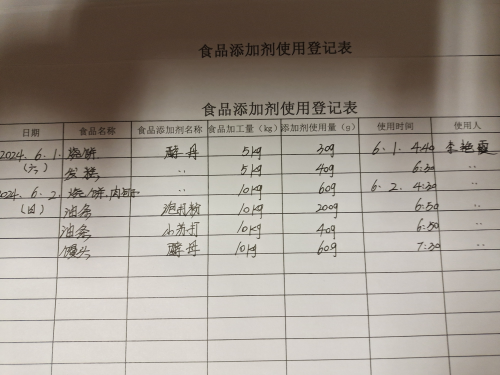 食品添加剂使用登记表
食品添加剂使用登记表
日期 食品名称 食品添加剂名称 食品加工量（kg） 添加剂使用量（g） 使用时间 使用人
2024.6.1. 烧饼 酵母 5kg 30g 6.1.4:40 李艳霞
(六) 发糕 〃 5kg 40g 6:30 〃
2024.6.2. 烧饼、肉 〃 10kg 60g 6.2.4:30 〃
(日) 油条 泡打粉 10kg 200g 6:50 〃
油条 小苏打 10kg 40g 6:50 〃
馒头 酵母 10kg 60g 7:30 〃